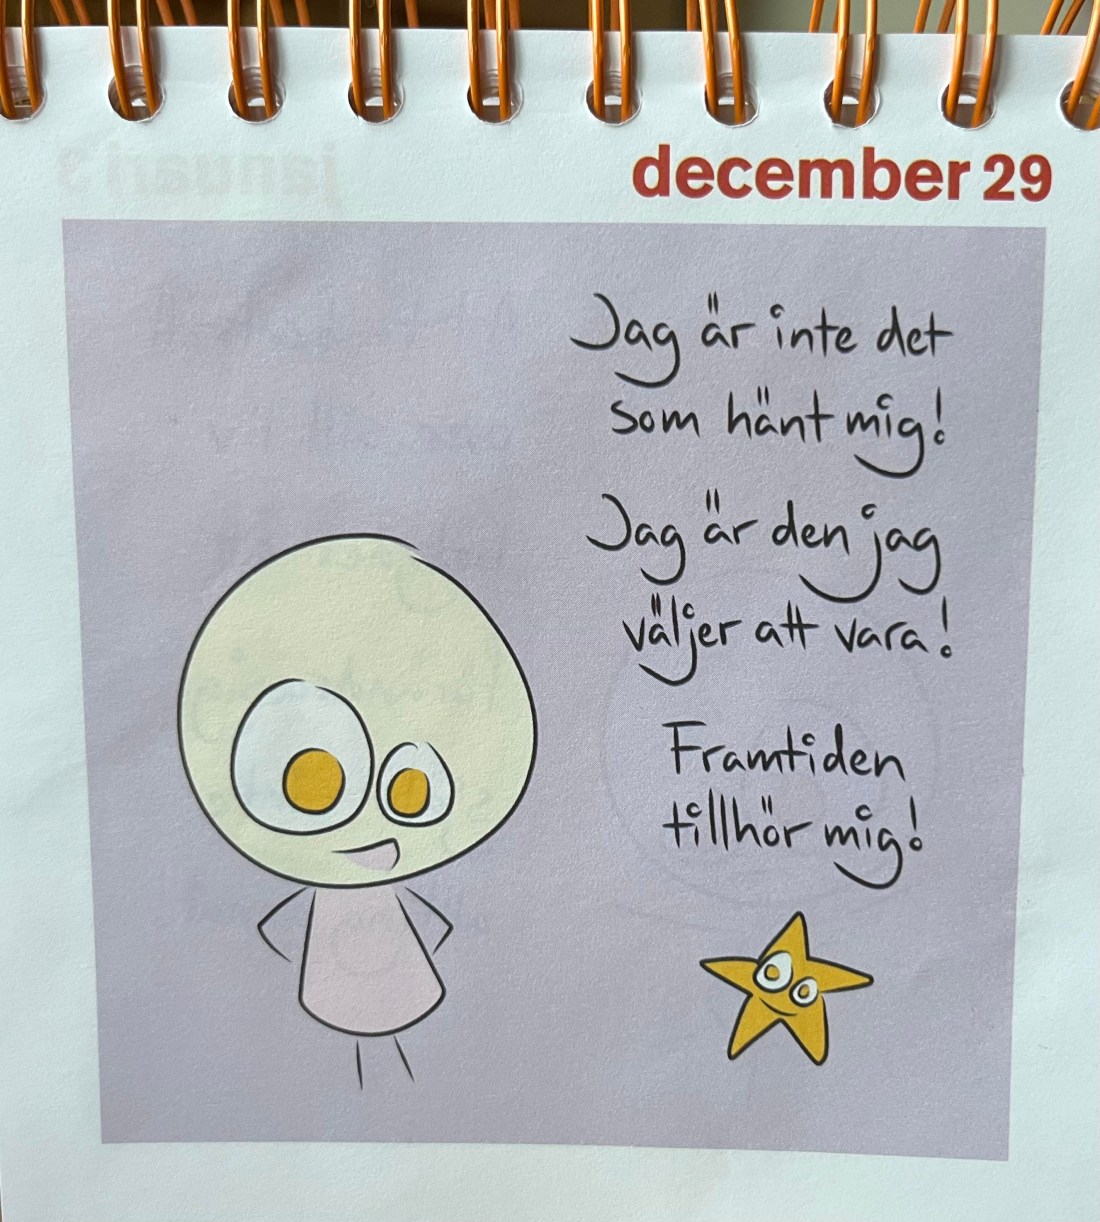 december 29
Jag är inte det
som hänt mig!
Jag är den jag
väljer att vara!
Framtiden
tillhör mig!
januari 3